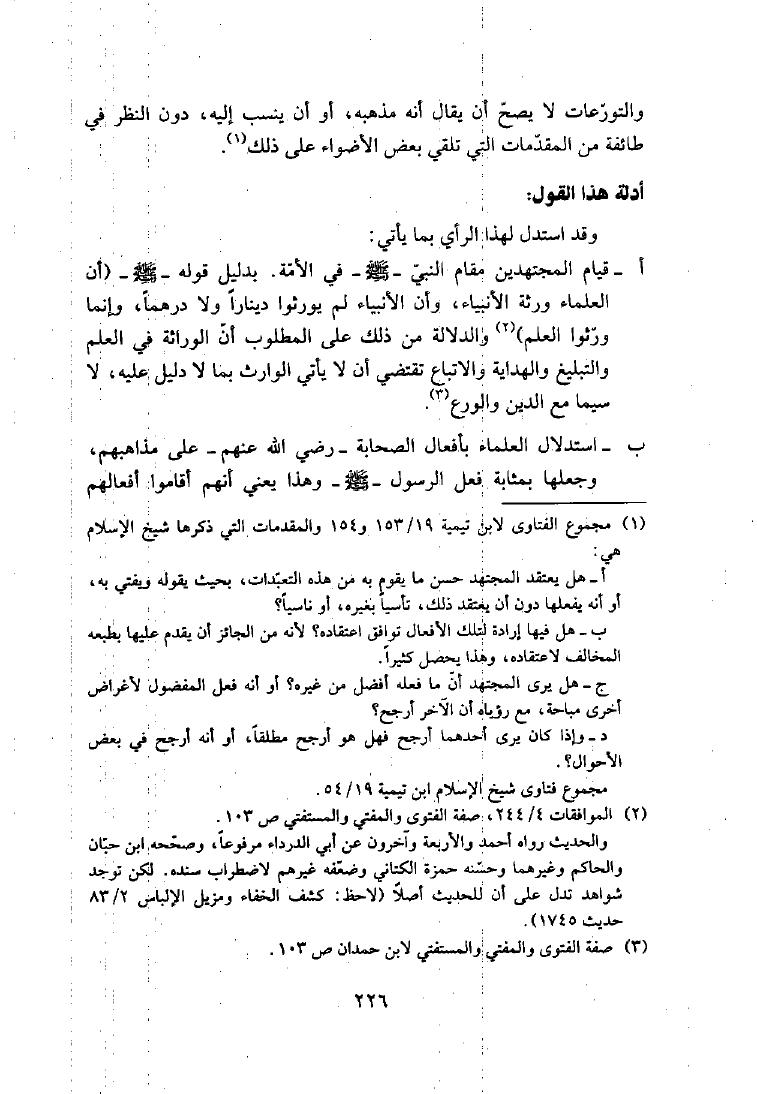 والتورّعات لا يصحّ أن يقال أنه مذهبه، أو أن ينسب إليه، دون النظر في
طائفة من المقدّمات التي تلقي بعض الأضواء على ذلك(١).
أدلة هذا القول:
وقد استدل لهذا الرأي بما يأتي:
أ ـ قيام المجتهدين مقام النبيّ ـ ﷺ ـ في الأمّة. بدليل قوله ـ ﷺ ـ (أن
العلماء ورثة الأنبياء، وأن الأنبياء لم يورثوا ديناراً ولا درهماً، وإنما
ورّثوا العلم)(٢) والدلالة من ذلك على المطلوب أنّ الوراثة في العلم
والتبليغ والهداية والاتباع تقتضي أن لا يأتي الوارث بما لا دليل عليه، لا
سيما مع الدين والورع(٣).
ب ـ استدلال العلماء بأفعال الصحابة ـ رضي الله عنهم ـ على مذاهبهم،
وجعلها بمثابة فعل الرسول ـ ﷺ ـ وهذا يعني أنهم أقاموا أفعالهم
(١) مجموع الفتاوى لابن تيمية ١٥٣/١٩ و١٥٤ والمقدمات التي ذكرها شيخ الإسلام
هي:
أ ـ هل يعتقد المجتهد حسن ما يقوم به من هذه التعبّدات، بحيث يقوله ويفتي به،
أو أنه يفعلها دون أن يعتقد ذلك، تأسياً بغيره، أو ناسياً؟
ب ـ هل فيها إرادة لتلك الأفعال توافق اعتقاده؟ لأنه من الجائز أن يقدم عليها بطبعه
المخالف لاعتقاده، وهذا يحصل كثيراً.
ج ـ هل يرى المجتهد أنّ ما فعله أفضل من غيره؟ أو أنه فعل المفضول لأغراض
أخرى مباحة، مع رؤياه أن الآخر أرجح؟
د ـ وإذا كان يرى أحدهما أرجح فهل هو أرجح مطلقاً، أو أنه أرجح في بعض
الأحوال؟.
مجموع فتاوى شيخ الإسلام ابن تيمية ٥٤/١٩.
(٢) الموافقات ٢٤٤/٤، صفة الفتوى والمفتي والمستفتي ص ١٠٣.
والحديث رواه أحمد والأربعة وآخرون عن أبي الدرداء مرفوعاً، وصحّحه ابن حبّان
والحاكم وغيرهما وحسّنه حمزة الكتاني وضعّفه غيرهم لاضطراب سنده. لكن توجد
شواهد تدل على أن للحديث أصلاً (لاحظ: كشف الخفاء ومزيل الإلباس ٨٣/٢
حديث ١٧٤٥).
(٣) صفة الفتوى والمفتي والمستفتي لابن حمدان ص ١٠٣.
٢٢٦